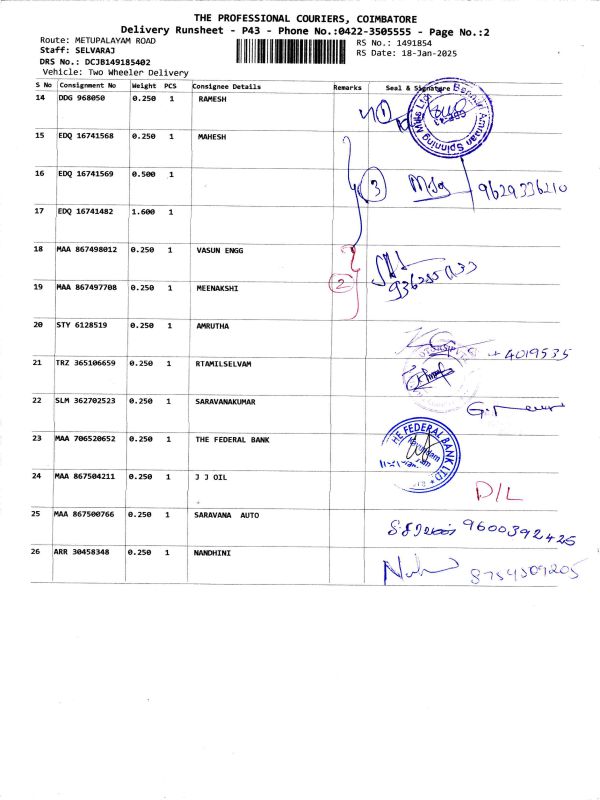 THE PROFESSIONAL COURIERS, COIMBATORE
Delivery Runsheet - P43 - Phone No.:0422-3505555 - Page No.:2
Route: METUPALAYAM ROAD RS No.: 1491854
Staff: SELVARAJ RS Date: 18-Jan-2025
DRS No.: DCJB149185402
Vehicle: Two Wheeler Delivery
S No Consignment No Weight PCS Consignee Details Remarks Seal & Signature
14 DDG 968050 0.250 1 RAMESH 1
15 EDQ 16741568 0.250 1 MAHESH
16 EDQ 16741569 0.500 1 3 9629336210
17 EDQ 16741482 1.600 1
18 MAA 867498012 0.250 1 VASUN ENGG
19 MAA 867497708 0.250 1 MEENAKSHI 2
20 STY 6128519 0.250 1 AMRUTHA 4019535
21 TRZ 365106659 0.250 1 RTAMILSELVAM
22 SLM 362702523 0.250 1 SARAVANAKUMAR
23 MAA 706520652 0.250 1 THE FEDERAL BANK HE FEDERAL BANK LTD
24 MAA 867504211 0.250 1 J J OIL D/L
25 MAA 867500766 0.250 1 SARAVANA AUTO 9600392425
26 ARR 30458348 0.250 1 NANDHINI 8754509205